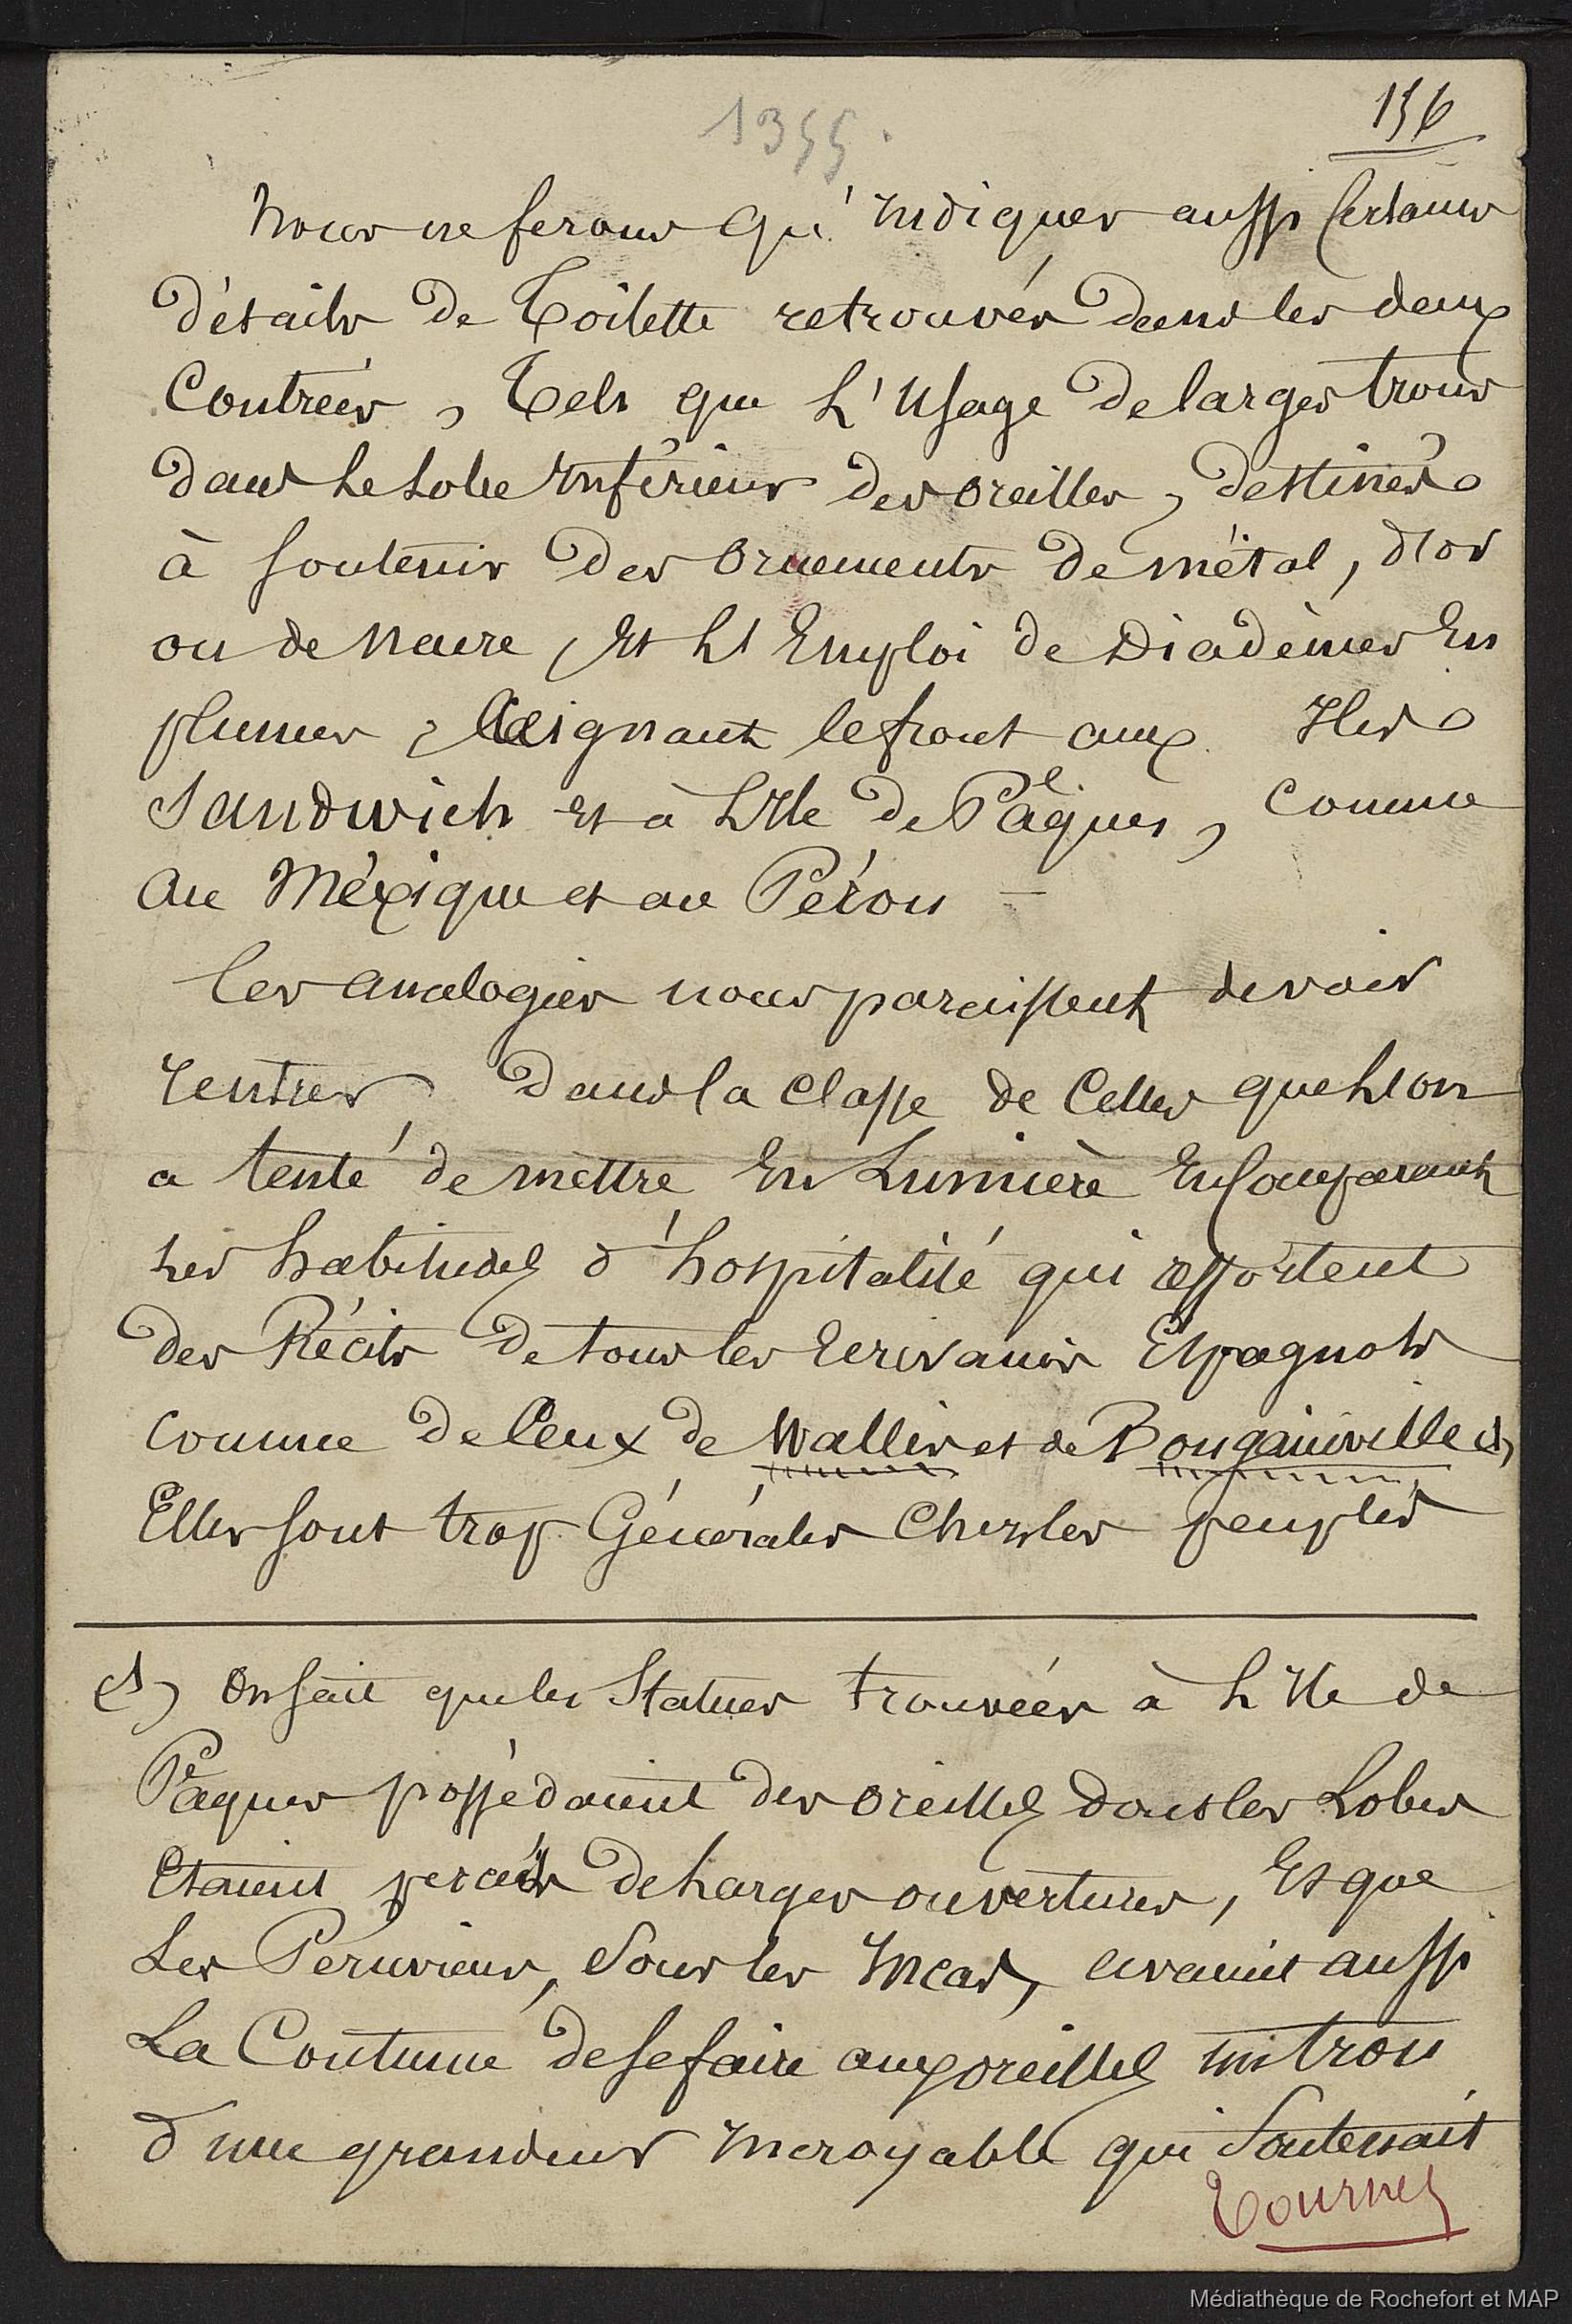 1355.
156
Nous ne ferons qu'indiquer aussi Certains
détails de Toilette retrouvés dans les deux
Contrées, Tels que L'Usage de larges trous
dans Le Lobe Inférieur des oreilles, destinés
à Soutenir des Ornements de métal, d'or
ou de nacre, Et L'Emploi de Diadèmes En
plumes, Ceignant le front aux Iles
Sandwich et à L'Ile de Pâques, Comme
Au Méxique et au Pérou -
Ces analogies nous paraissent devoir
rentrer dans la Classe de Celles que L'on
a tenté de mettre En Lumière En Comparant
Les habitudes d'hospitalité qui ressortent
des Récits de tous les Ecrivains Espagnols
Comme de Ceux de Wallis et de Bougainville (1)
Elles sont trop Générales Chez les peuples
(1) On sait que les Statues trouvées à L'Ile de
Pâques possédaient des oreilles dont les Lobes
Etaient percés de Larges ouvertures, Et que
Les Péruviens, Sous les Incas, avaient aussi
La Coutume de se faire aux oreilles un trou
d'une grandeur Incroyable qui Soutenait
Tournez
Médiathèque de Rochefort et MAP